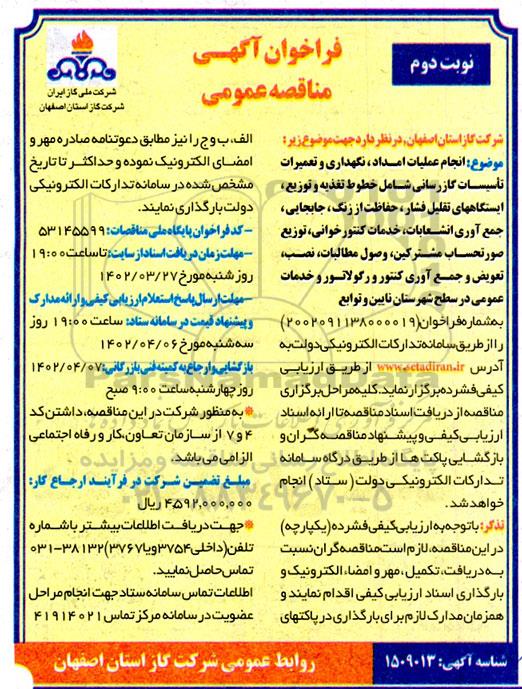 نوبت دوم
فراخوان آگهی
مناقصه عمومی
شرکت ملی گاز ایران
شرکت گاز استان اصفهان
شرکت گاز استان اصفهان، در نظر دارد جهت موضوع زیر:
موضوع: انجام عملیات امداد، نگهداری و تعمیرات
تأسیسات گازرسانی شامل خطوط تغذیه و توزیع،
ایستگاههای تقلیل فشار، حفاظت از زنگ، جابجایی،
جمع آوری انشعابات، خدمات کنتورخوانی، توزیع
صورتحساب مشترکین، وصول مطالبات، نصب،
تعویض و جمع آوری کنتور و رگولاتور و خدمات
عمومی در سطح شهرستان نایین و توابع
به شماره فراخوان (۲۰۰۲۰۹۱۱۳۸۰۰۰۰۱۹)
را از طریق سامانه تدارکات الکترونیکی دولت به
آدرس www.setadiran.ir از طریق ارزیابی
کیفی فشرده برگزار نماید. کلیه مراحل برگزاری
مناقصه از دریافت اسناد مناقصه تا ارائه اسناد
ارزیابی کیفی و پیشنهاد مناقصه گران و
بازگشایی پاکت ها از طریق درگاه سامانه
تدارکات الکترونیکی دولت (ستاد) انجام
خواهد شد.
تذکر: باتوجه به ارزیابی کیفی فشرده (یکپارچه)
در این مناقصه، لازم است مناقصه گران نسبت
به دریافت، تکمیل، مهر و امضاء الکترونیک و
بارگذاری اسناد ارزیابی کیفی اقدام نمایند و
همزمان مدارک لازم برای بارگذاری در پاکتهای
الف، ب و ج را نیز مطابق دعوتنامه صادره مهر و
امضای الکترونیک نموده و حداکثر تا تاریخ
مشخص شده در سامانه تدارکات الکترونیکی
دولت بارگذاری نمایند.
-کد فراخوان پایگاه ملی مناقصات: ۵۳۱۴۵۵۹۹
-مهلت زمان دریافت اسناد از سایت: تا ساعت ۱۹:۰۰
روز شنبه مورخ ۱۴۰۲/۰۳/۲۷
-مهلت ارسال پاسخ استعلام ارزیابی کیفی و ارائه مدارک
و پیشنهاد قیمت در سامانه ستاد: ساعت ۱۹:۰۰ روز
سه شنبه مورخ ۱۴۰۲/۰۴/۰۶
بازگشایی و ارجاع به کمیته فنی بازرگانی: ۱۴۰۲/۰۴/۰۷
روز چهارشنبه ساعت ۹:۰۰ صبح
*به منظور شرکت در این مناقصه، داشتن کد
۴ و ۷ از سازمان تعاون، کار و رفاه اجتماعی
الزامی می باشد.
مبلغ تضمین شرکت در فرآیند ارجاع کار:
۴,۵۹۲,۰۰۰,۰۰۰ ریال
*جهت دریافت اطلاعات بیشتر با شماره
تلفن (داخلی ۳۷۵۴ و یا ۳۷۶۷) ۳۸۱۳۲-۰۳۱
تماس حاصل نمایید.
اطلاعات تماس سامانه ستاد جهت انجام مراحل
عضویت در سامانه مرکز تماس ۴۱۹۱۴۰۲۱
شناسه آگهی: ۱۵۰۹۰۱۳
روابط عمومی شرکت گاز استان اصفهان